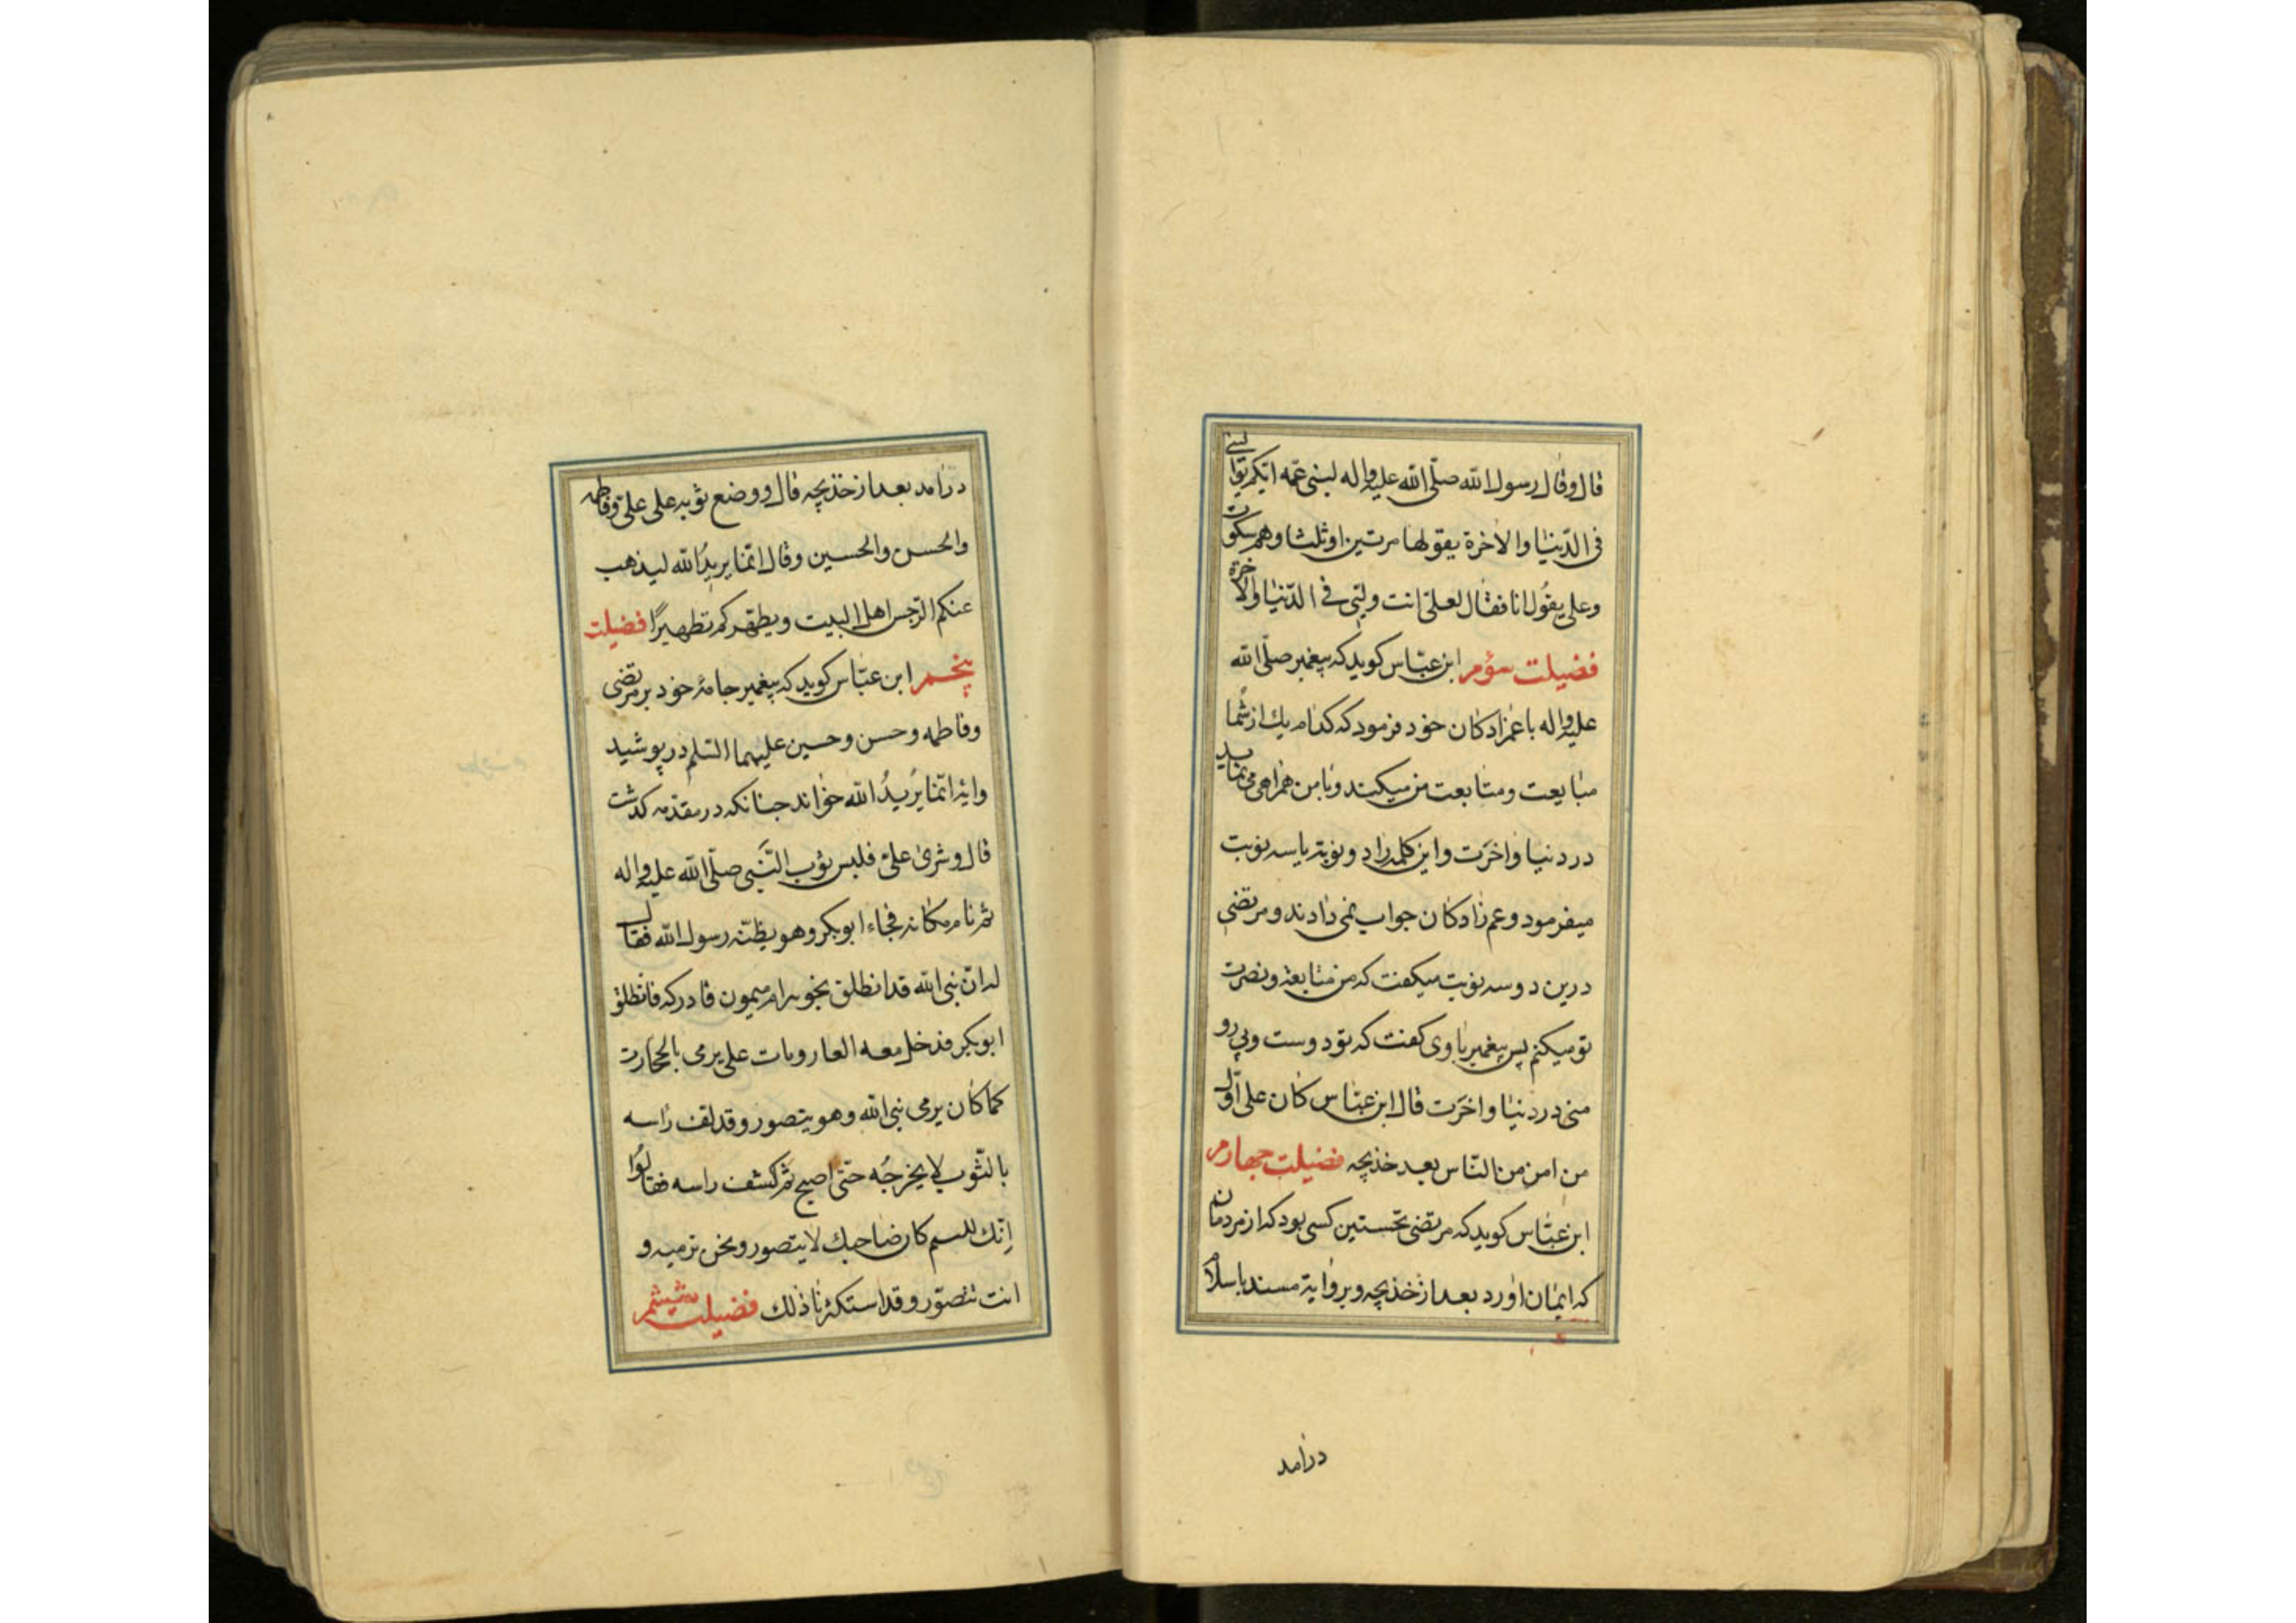 قال وقال رسول الله صلّى الله عليه واله لبنى عمه ايّكم يتوالينى
فى الدّنيا والاخرة يقولها مرتين اوثلثا وهم سكوت
وعلى يقُول انا فقال لعلىّ انت وليّى فى الدّنيا والاخرة
فضيلت سؤم ابن عبّاس كويد كه پيغمبر صلّى الله
عليه واله باعمزادكان خود فرمود كه كدام يك از شما
مبايعت ومتابعت من ميكند وبا من همراهى مى نمايد
در دنيا واخرَت واين كلمه را دو نوبة يا سه نوبت
ميفرمود وعم زادكان جواب نمى دادند ومرتضى
درين دوسه نوبت ميكفت كه من متابعة ونصرت
تو ميكنم پس پيغمبر باوى كفت كه تو دوست وپى رو
منى در دنيا واخرَت قال ابن عبّاس كان على اوّل
من امن من النّاس بعد خذيجه فضيلت جهارم
ابن عبّاس كويد كه مرتضى نخستين كسى بود كه از مردمان
كه ايمان اورد بعد از خذيجه وبرواية مسند باسلام
درامد
درامد بعد از خذيجه قال ووضع ثوبه على علىّ وفاطمه
والحسن والحسين وقال انّما يريدُ الله ليذهب
عنكم الرّجس اهل البيت ويطهّركم تطهيرًا فضيلت
پنجم ابن عبّاس كويد كه پيغمبر جامهٔ خود بر مرتضى
وفاطمه وحسن وحسين عليهما السّلم در پوشيد
وايهٔ انّما يُريدُ الله خواند جنانكه در مقدّمه كذشت
قال وشرىٰ علىّ فلبس ثوب النّبى صلّى الله عليه واله
ثم نام مكانه فجاء ابوبكر وهو يظنّه رسول الله فقال
له انّ نبى الله قد انطلق نحو بيرام ميمون فادركه فانطلق
ابوبكر فدخل معه الغار وبات على يرمى بالحجارت
كما كان يرمى نبى الله وهو يتصور وقد لقف راسه
بالثّوب لا يخرجُه حتّى اصبح ثم كشف راسه فقالوُا
اِنّك للسم كان صاحبك لا يتصور ونحن نرميه و
انت تتصوّر وقد استكرنا ذلك فضيلت شيشم